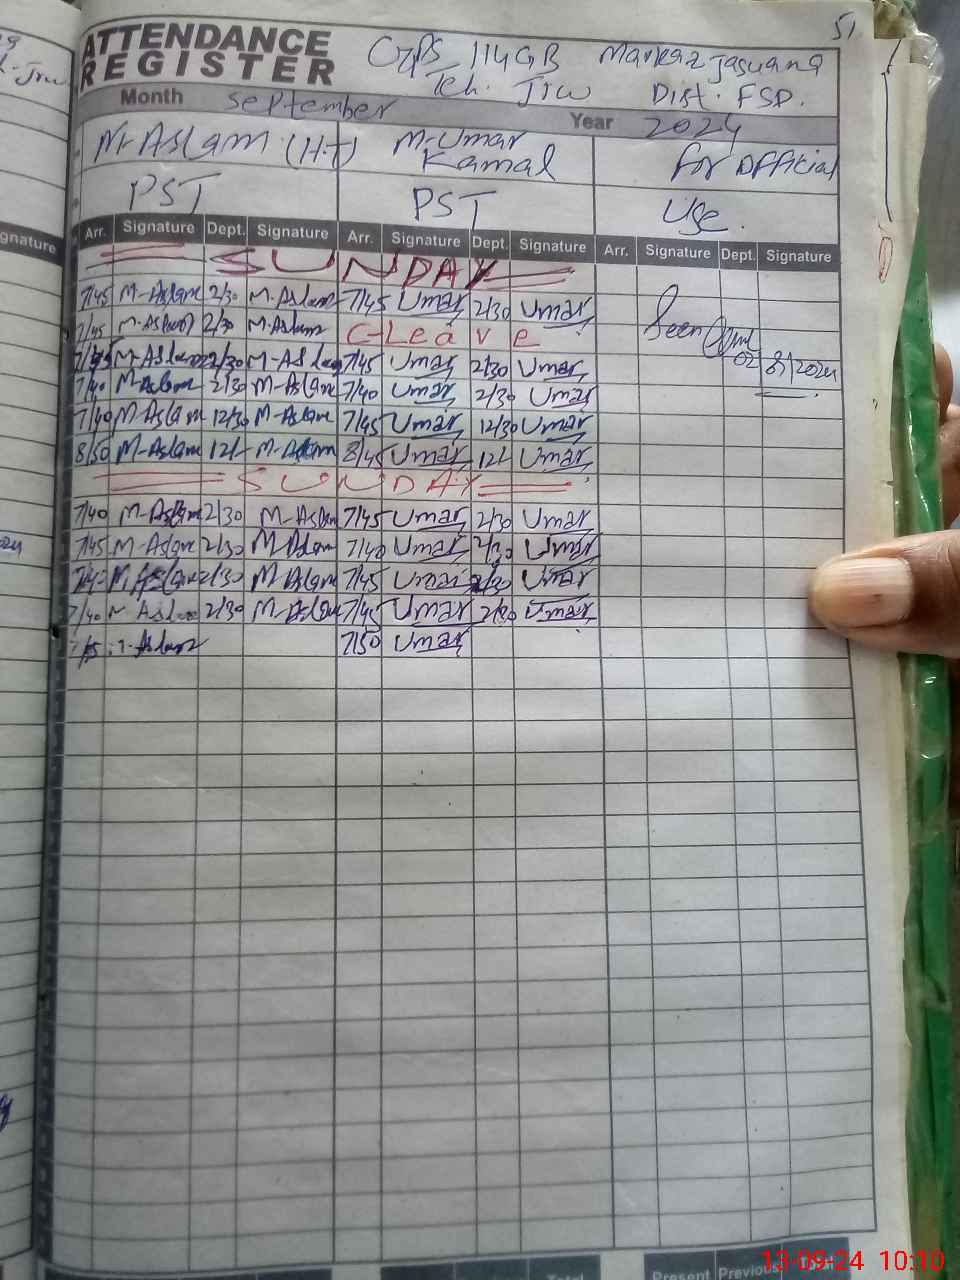 51
ATTENDANCE REGISTER
GPS 114GB Markaz Jasuana
Teh. Jrw Dist. FSD.
Month September Year 2024
M-Aslam (H.T) M-Umar Kamal For Official
PST PST Use.
Arr. Signature Dept. Signature Arr. Signature Dept. Signature Arr. Signature Dept. Signature
SUNDAY
7/45 M-Aslam 2/30 M-Aslam 7/45 Umar 2/30 Umar Seen
7/45 M-Aslam 2/30 M-Aslam C-Leave
7/45 M-Aslam 2/30 M-Aslam 7/45 Umar 2/30 Umar
7/40 M-Aslam 2/30 M-Aslam 7/40 Umar 2/30 Umar
7/40 M-Aslam 12/30 M-Aslam 7/45 Umar 12/30 Umar
8/50 M-Aslam 12/ M-Aslam 8/45 Umar 12/ Umar
SUNDAY
7/40 M-Aslam 2/30 M-Aslam 7/45 Umar 2/30 Umar
7/45 M-Aslam 2/30 M-Aslam 7/40 Umar 2/30 Umar
M-Aslam 2/30 M-Aslam 7/45 Umar 2/30 Umar
7/40 M-Aslam 2/30 M-Aslam 7/45 Umar 2/30 Umar
Aslam 7/50 Umar
Total Present Previous
13-09-24 10:10